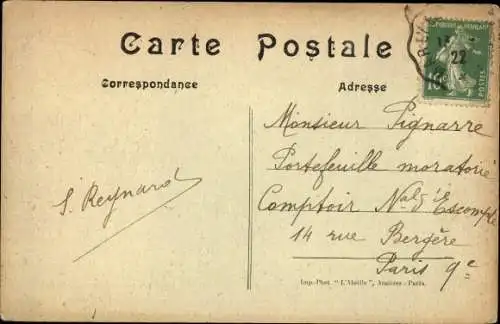 Carte Postale
Correspondance
Adresse
22
10
POSTES
Monsieur Pignarre
Portefeuille moratorié
Comptoir Nal d'Escompte
14 rue Bergère
Paris 9e
S. Reynard
Imp.-Phot. "L'Abeille", Asnières - Paris.